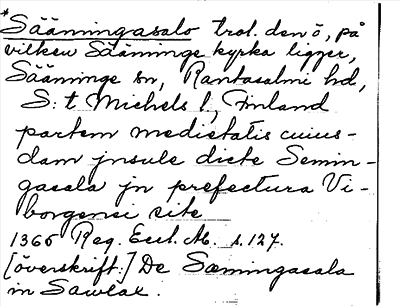 *Sääningasalo trol. den ö, på
vilken Sääminge kyrka ligger,
Sääminge sn, Rantasalmi hd,
S:t Michels l, Finland
partem medietatis cuius-
dam jnsule dicte Semin-
gasala jn prefectura Vi-
borgensi site
1366 Reg. Eccl. Ab. s. 127.
[överskrift:] De Sæmingasala
in Sawlax.